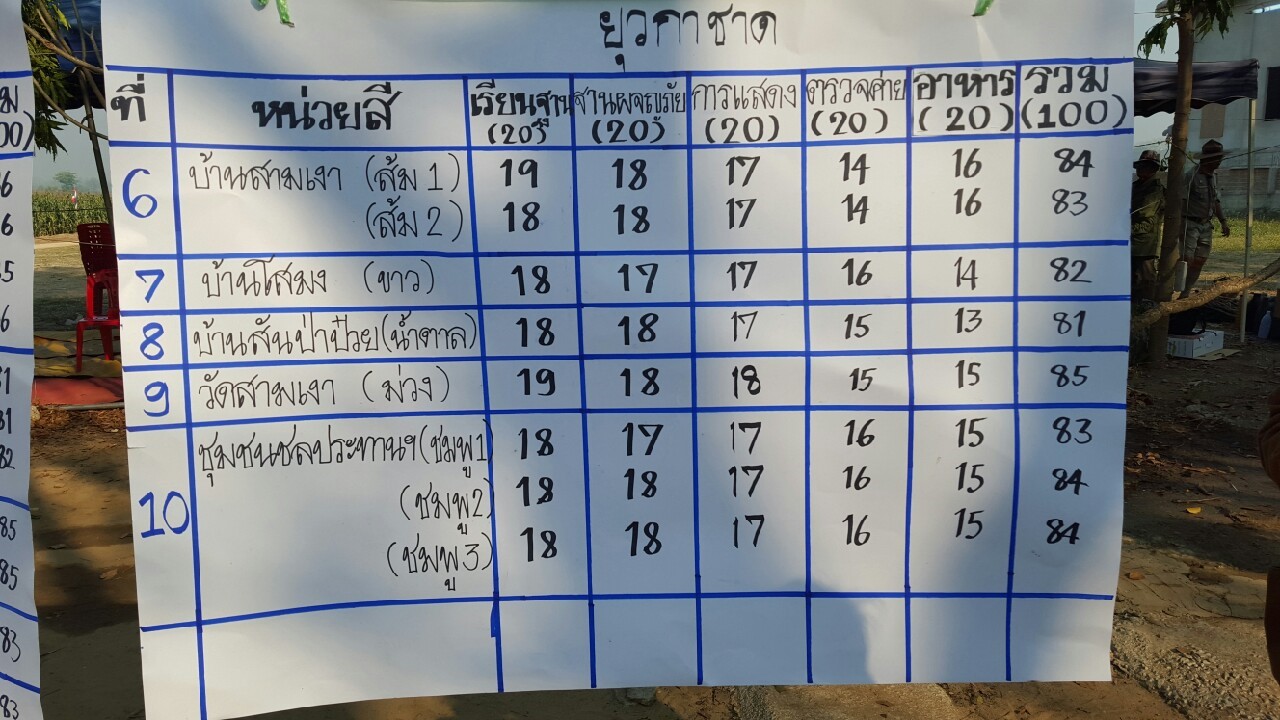 ยุวกาชาด
ที่ หน่วยสี เรียนฐาน ฐานผจญภัย การแสดง ตรวจค่าย อาหาร รวม
(20) (20) (20) (20) (20) (100)
6 บ้านสามเงา (ส้ม 1) 19 18 17 14 16 84
(ส้ม 2) 18 18 17 14 16 83
7 บ้านโสมง (ขาว) 18 17 17 16 14 82
8 บ้านสันป่าป๋วย (น้ำตาล) 18 18 17 15 13 81
9 วัดสามเงา (ม่วง) 19 18 18 15 15 85
10 ชุมชนชลประทานฯ (ชมพู 1) 18 17 17 16 15 83
(ชมพู 2) 18 18 17 16 15 84
(ชมพู 3) 18 18 17 16 15 84